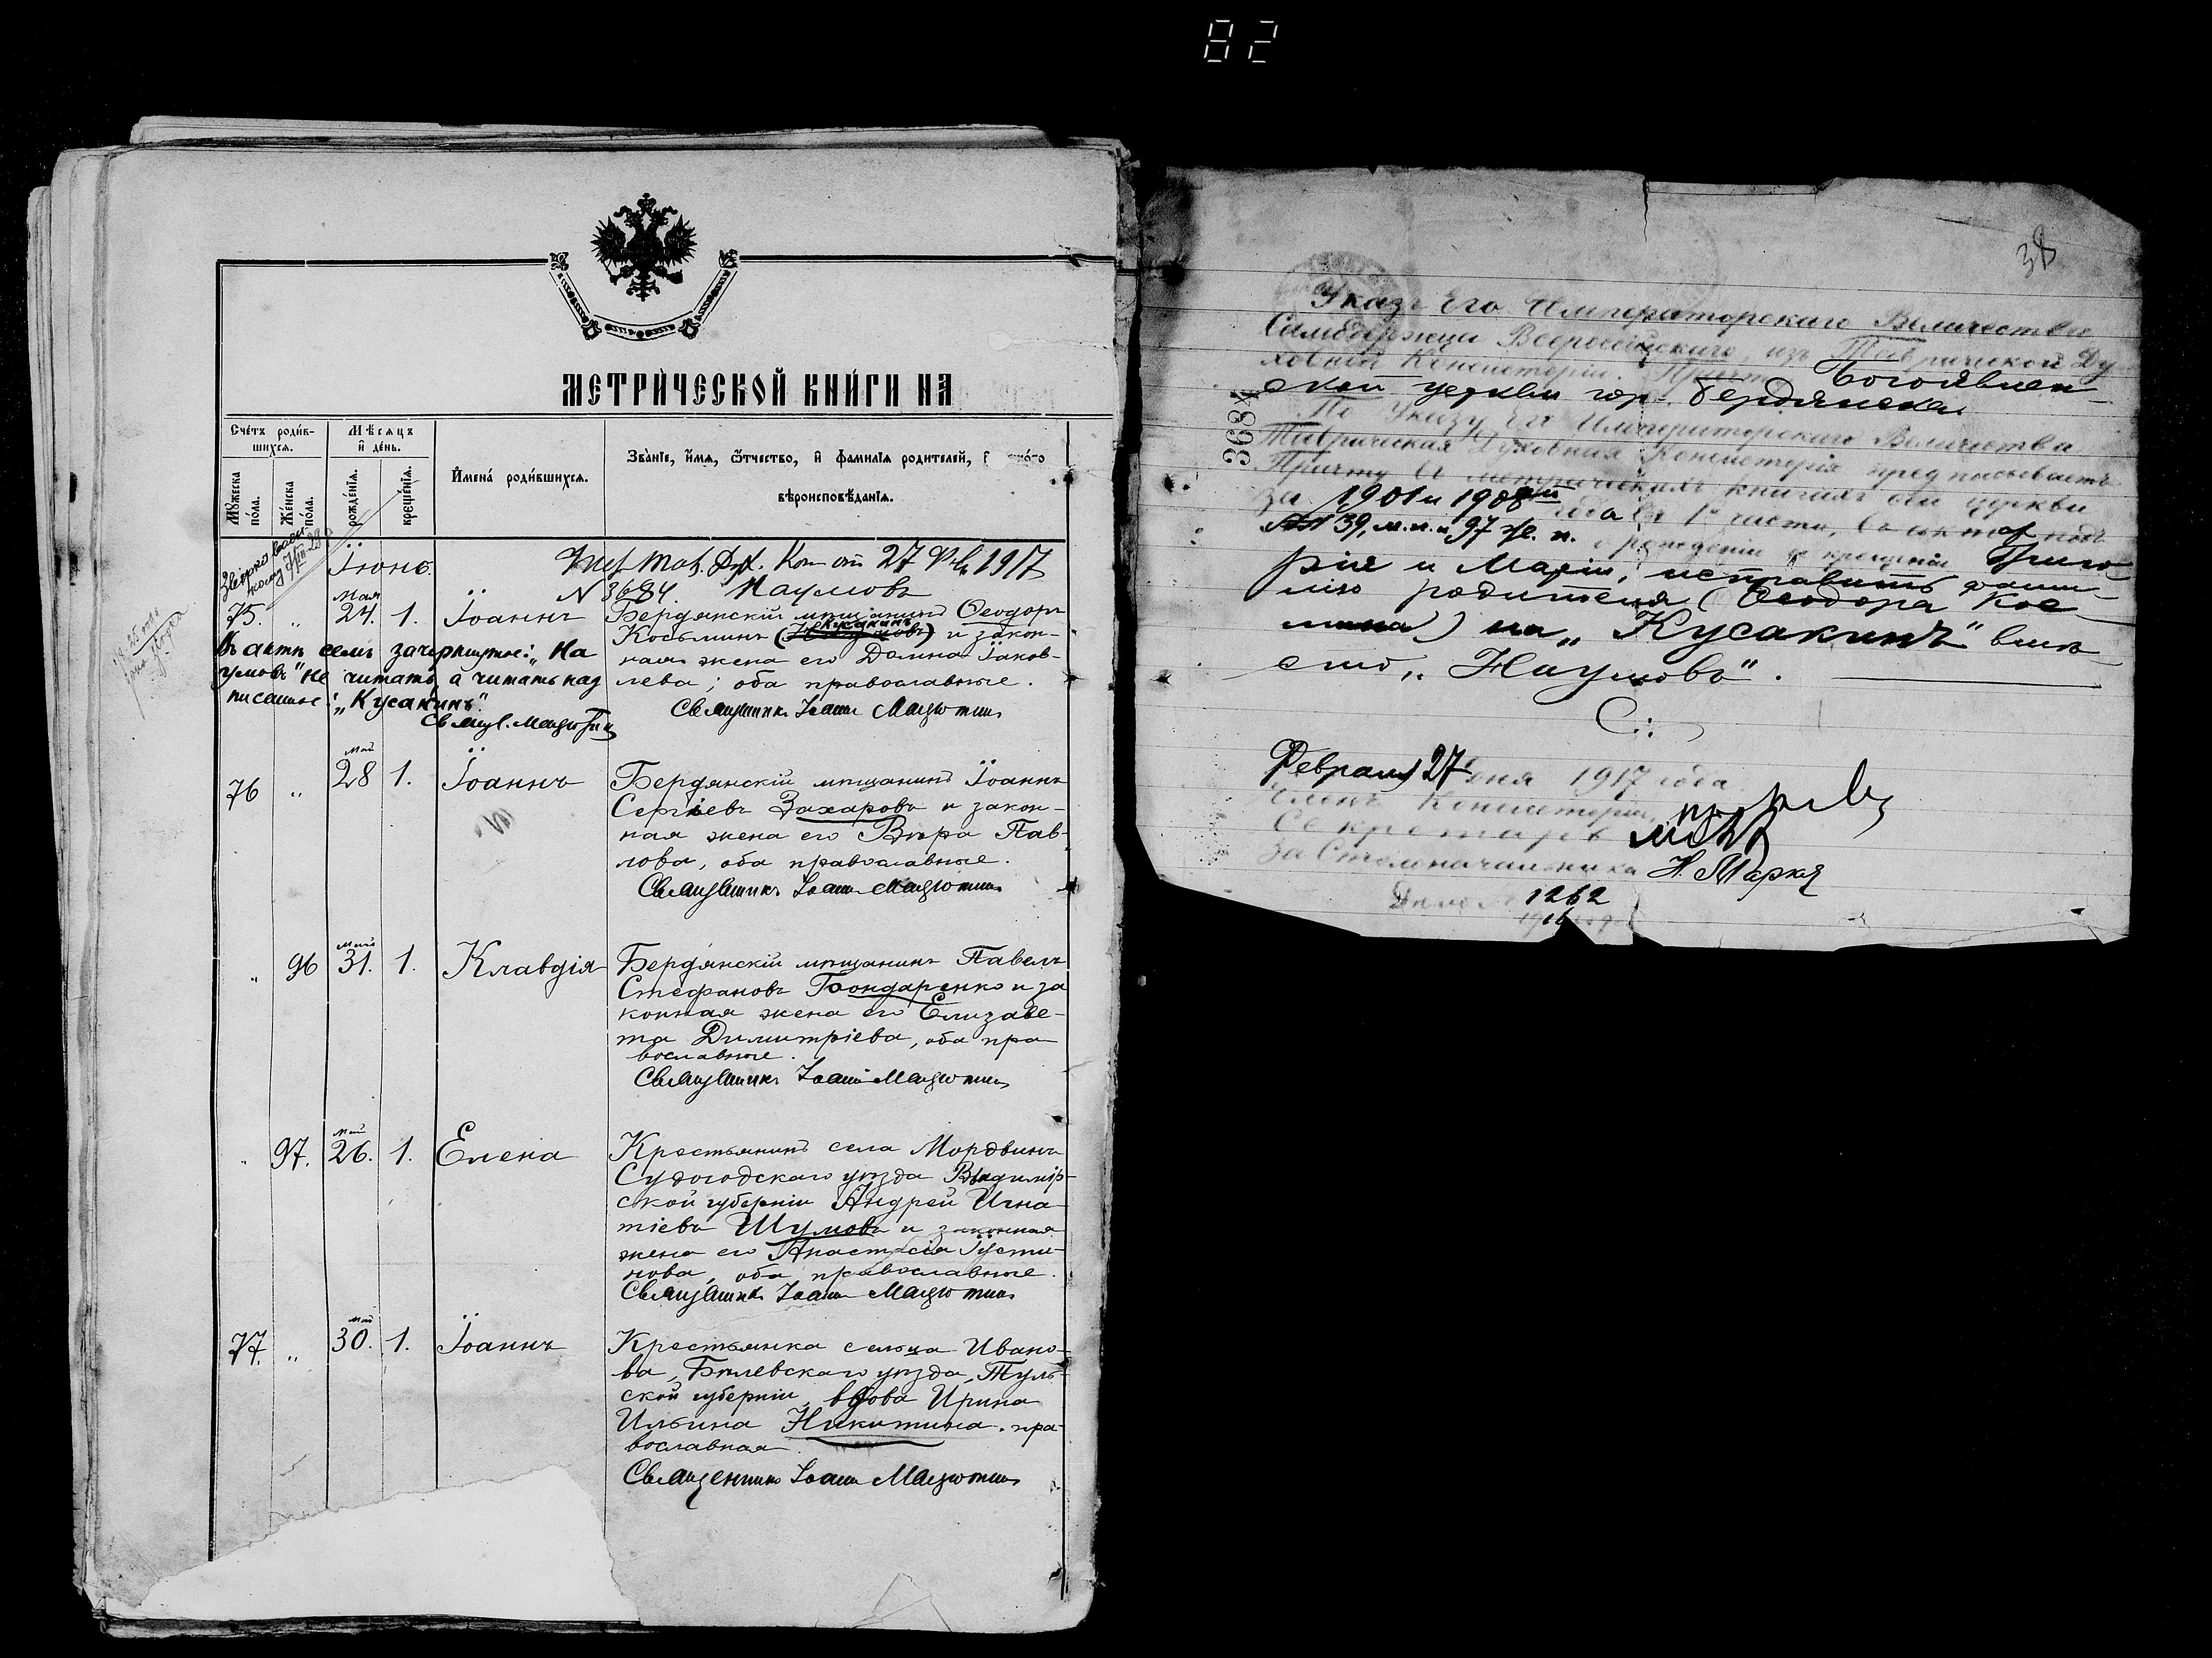 82
МЕТРИЧЕСКОЙ КНИГИ НА
Счетъ родив-
шихся.
Мѣсяцъ
и день.
Мужеска
пола.
Женска
пола.
рожденія.
крещенія.
Имена родившихся.
Званіе, имя, отчество, и фамилія родителей, и
вѣроисповѣданія.
Іюнь.
Дух. Кон. отъ 27 1917
N 3684. Наумовъ
75. " Мая 24. 1. Іоаннъ
Бердянскій мѣщанинъ Ѳеодоръ
Кусакинъ
Косьминъ (Наумовъ) и закон-
ная жена его Домна Іаков-
лева; оба православные.
Священникъ Іоаннъ
Въ актѣ семъ зачеркнутое: „На
умовъ" не читать, а читать над
писаное: „Кусакинъ".
76 " Май 28 1. Іоаннъ
Бердянскій мѣщанинъ Іоаннъ
Сергіевъ Захаровъ и закон-
ная жена его Вѣра Пав-
лова, оба православные.
Священникъ Іоаннъ
" 96 Май 31. 1. Клавдія
Бердянскій мѣщанинъ Павелъ
Стефановъ Бондаренко и за
конная жена его Елизаве-
та Димитріева, оба пра-
вославные.
Священникъ Іоаннъ
" 97. Май 26. 1. Елена
Крестьянинъ села Мордвинъ
Судогодскаго уѣзда Владимір-
ской губерніи Андрей Игна-
тіевъ Шумовъ и законная
жена его Анастасія Іусти-
нова, оба православные.
Священникъ Іоаннъ
77. " Май 30. 1. Іоаннъ
Крестьянка сельца Ивано-
ва, Бѣлевскаго уѣзда, Туль-
ской губерніи, вдова Ирина
Ильина Никитина, пра-
вославная
Священникъ Іоаннъ
38
3684
Указъ Его Императорскаго Величества
Самодержца Всероссійскаго, изъ Таврической Ду
ховной Консисторіи. Причту Богоявлен-
ской церкви гор. Бердянска.
По Указу Его Императорскаго Величества
Таврическая Духовная Консисторія предписываетъ
Причту въ метрическихъ книгахъ сей церкви
за 1901 и 1908 года въ 1й части, въ актаф подъ
№№ 39, м.п. и 97 ж. п. о рожденіи и крещеніи Григо
рія и Маріи, исправить фами-
лію родителя (Ѳеодора Кос
мина) на „Кусакинъ" вмѣ
сто „Наумовъ".
Февраля 27 дня 1917 года.
Членъ Консисторіи,
Секретарь
За Столоначальника
Дѣло № 1262
1916